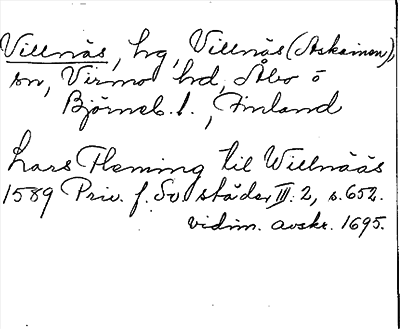 Villnäs, hg, Villnäs (Askainen),
sn, Virmo hd, Åbo ö
Björneb. l., Finland
Lars Fleming til Willnääs
1589 Priv. f. Sv. städer III: 2, s. 652.
vidim. avskr. 1695.